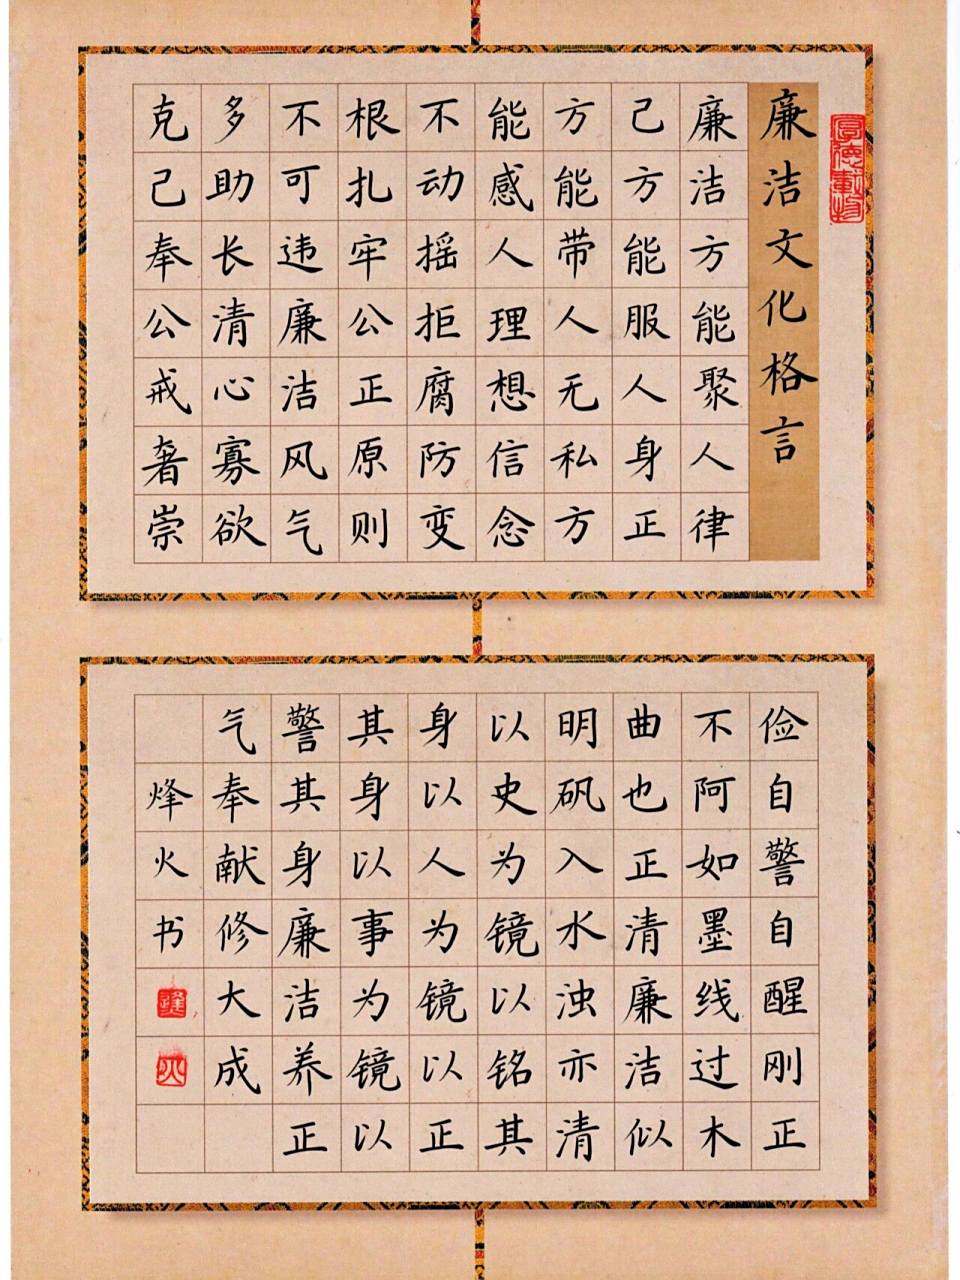 厚德載物
廉洁文化格言
廉洁方能聚人律
己方能服人身正
方能带人无私方
能感人理想信念
不动摇拒腐防变
根扎牢公正原则
不可违廉洁风气
多助长清心寡欲
克己奉公戒奢崇
俭自警自醒刚正
不阿如墨线过木
曲也正清廉洁似
明矾入水浊亦清
以史为镜以铭其
身以人为镜以正
其身以事为镜以
警其身廉洁养正
气奉献修大成
烽火书